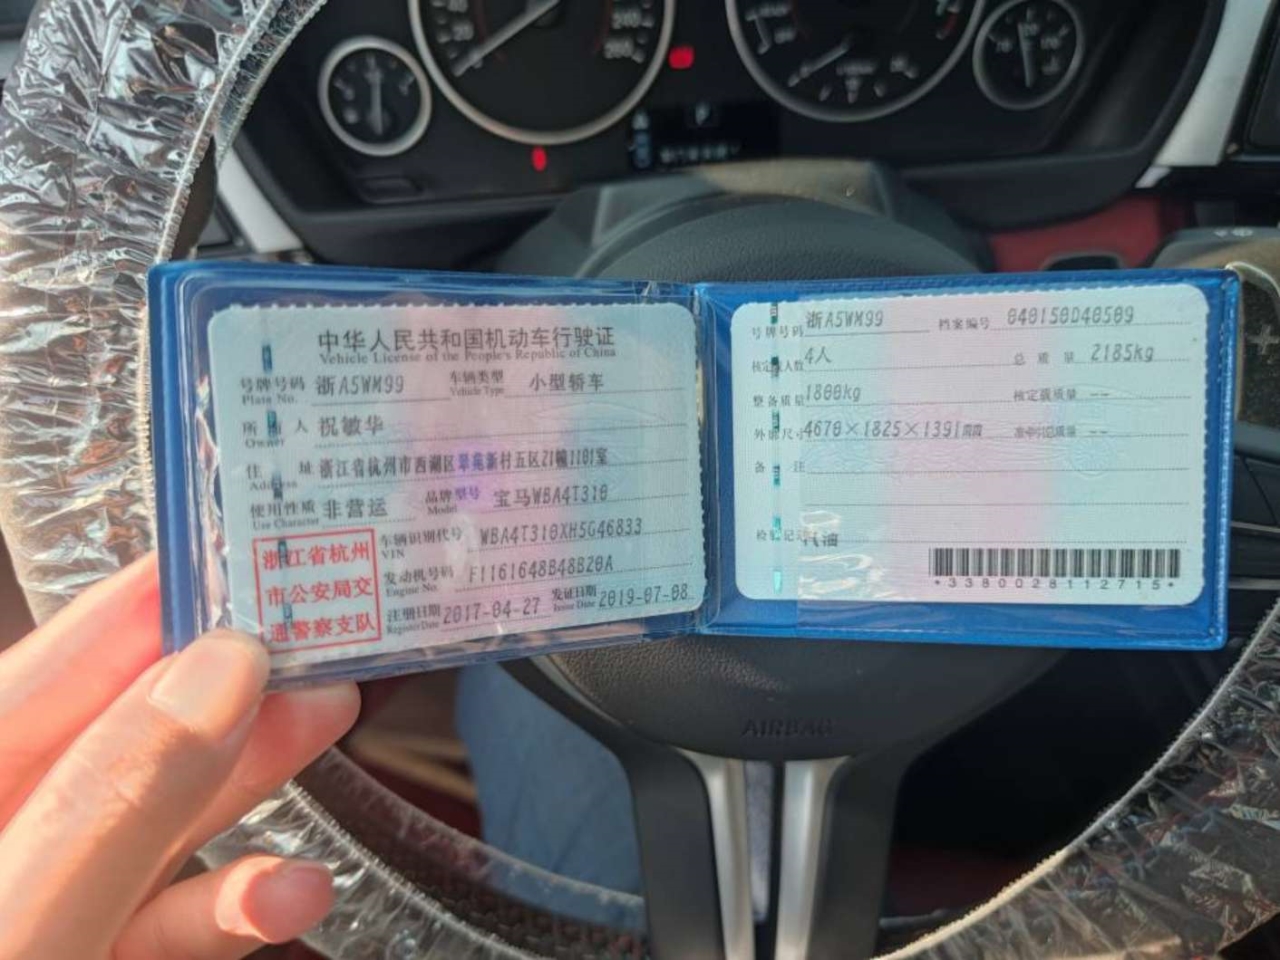 中华人民共和国机动车行驶证
Vehicle License of the People's Republic of China
号牌号码 浙A5WM99 车辆类型 小型轿车
Plate No. Vehicle Type
所有人 祝敏华
Owner
住址 浙江省杭州市西湖区翠苑新村五区21幢1101室
Address
使用性质 非营运 品牌型号 宝马WBA4T310
Use Character Model
浙江省杭州
市公安局交
通警察支队
车辆识别代号 WBA4T310XH5G46833
VIN
发动机号码 F1161648B48B20A
Engine No.
注册日期 2017-04-27 发证日期 2019-07-08
Register Date Issue Date
号牌号码 浙A5WM99 档案编号
核定载人数 4人 总质量 2185kg
整备质量 1800kg 核定载质量 --
外廓尺寸 4670×1825×1391mm 准牵引总质量 --
备注
检验记录 汽油
*3380028112715*
AIRBAG